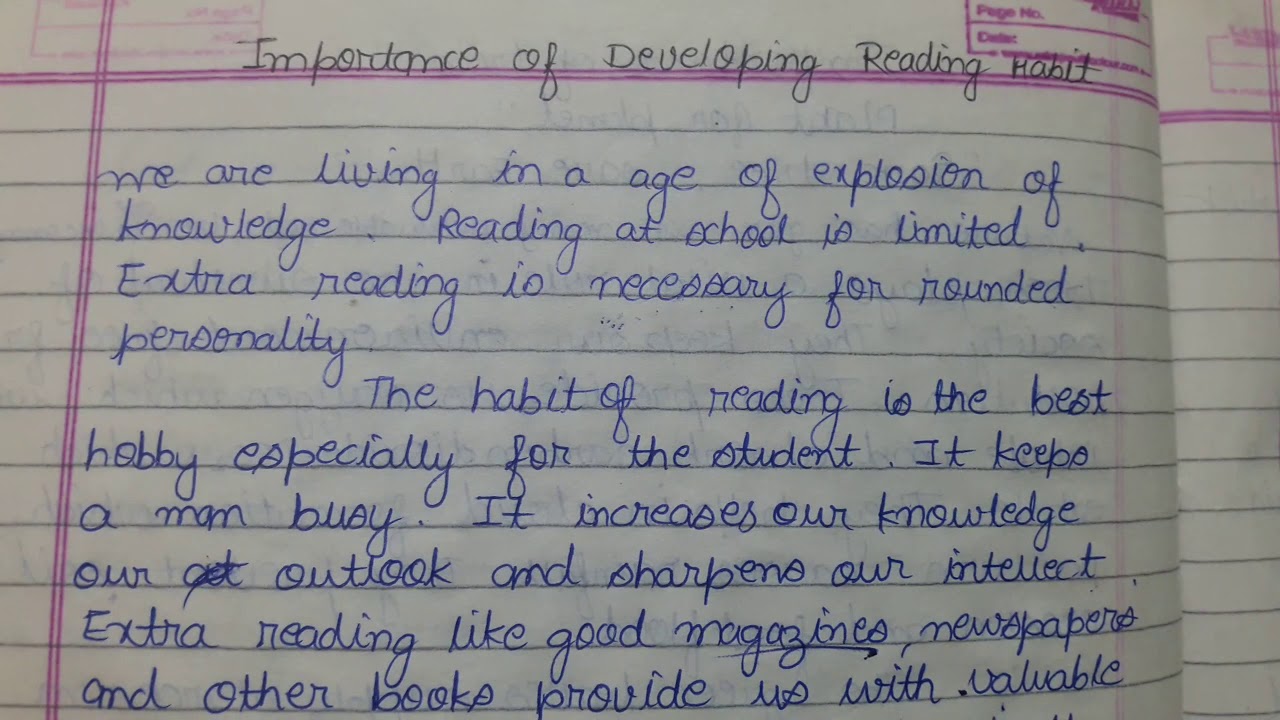 Page No.
Date:
Importance of Developing Reading Habit
We are living in a age of explosion of
knowledge. Reading at school is limited.
Extra reading is necessary for rounded
personality
The habit of reading is the best
hobby especially for the student. It keeps
a man busy. It increases our knowledge
our outlook and sharpens our intellect.
Extra reading like good magazines, newspapers
and other books provide us with valuable